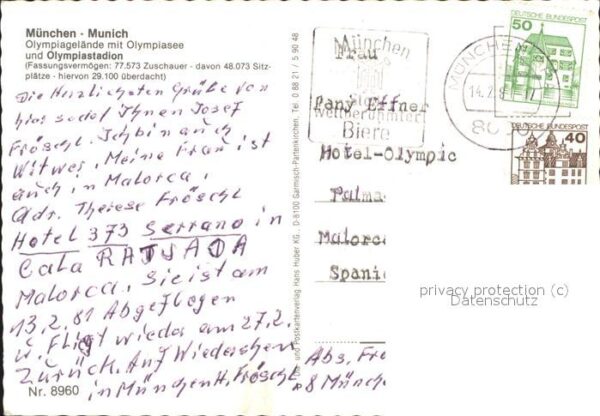 München · Munich
Olympiagelände mit Olympiasee
und Olympiastadion
(Fassungsvermögen: 77.573 Zuschauer - davon 48.073 Sitz-
plätze - hiervon 29.100 überdacht)
Die Herzlichsten Grüße von
sendet Ihnen Josef
Fröschl. Ich bin auch
Witwer, Meine Frau ist
auch in Malorca,
Adr. Therese Fröschl
Hotel 373 Serrano in
Cala RATJADA
Malorca, Sie ist am
13.2.81 Abgeflogen
u. fligt wieder am 27.2.
Zurück. Auf Wiedersehen
in München H. Fröschl
Nr. 8960
und Postkartenverlag Hans Huber KG., D-8100 Garmisch-Partenkirchen, Tel. 0 88 21 / 5 90 48
München
weltberühmter
Biere
MÜNCHEN
14.2.8
80
DEUTSCHE BUNDESPOST
50
DEUTSCHE BUNDESPOST
40
Frau
Pany Effner
Hotel-Olympic
Palma
Malorca
Spani
Abs. Frö
8 Münch
privacy protection (c)
Datenschutz